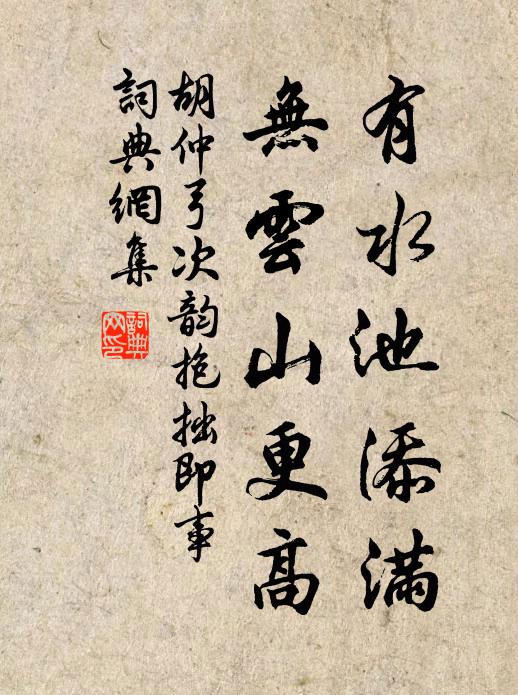 有水池添滿
無雲山更高
胡仲弓次韵抱拙即事
詞典網集
詞典網印